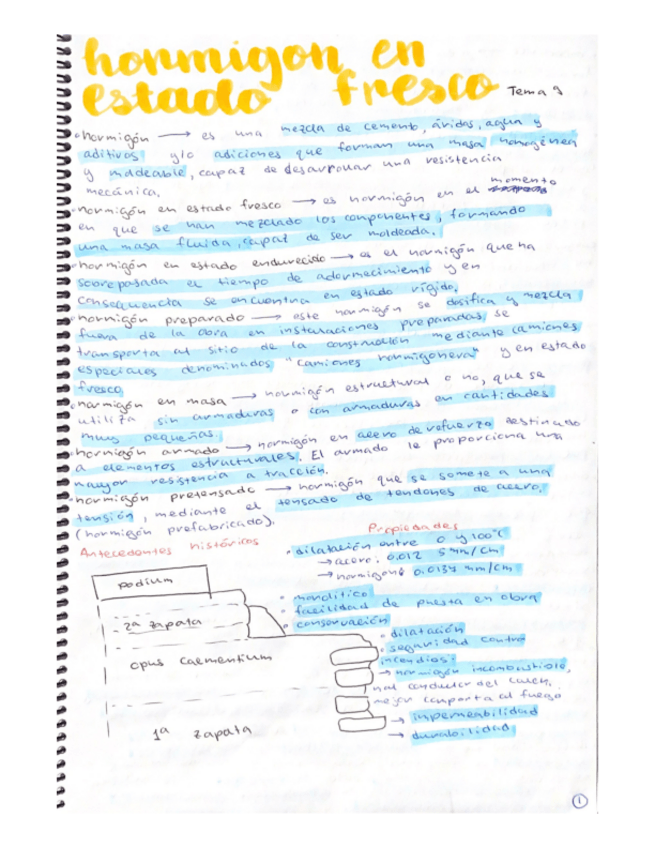 hormigon en
estado fresco Tema 9
• hormigón → es una mezcla de cemento, áridos, agua y
aditivos y/o adiciones que forman una masa homogénea
y moldeable, capaz de desarrollar una resistencia
mecánica.
• hormigón en estado fresco → es hormigón en el momento
en que se han mezclado los componentes, formando
una masa fluida, capaz de ser moldeada.
• hormigón en estado endurecido → es el hormigón que ha
sobrepasado el tiempo de adormecimiento y en
consecuencia se encuentra en estado rígido.
• hormigón preparado → este hormigón se dosifica y mezcla
fuera de la obra en instalaciones preparadas, se
transporta al sitio de la construcción mediante camiones
especiales denominados "camiones hormigonera" y en estado
fresco
• hormigón en masa → hormigón estructural o no, que se
utiliza sin armaduras o con armaduras en cantidades
muy pequeñas.
• hormigón armado → hormigón en acero de refuerzo destinado
a elementos estructurales. El armado le proporciona una
mayor resistencia a tracción.
• hormigón pretensado → hormigón que se somete a una
tensión, mediante el tensado de tendones de acero.
(hormigón prefabricado).
Antecedentes históricos
podium
2ª zapata
opus caementium
1ª zapata
Propiedades
• dilatación entre 0 y 100°C
→ acero: 0.012 mm/cm
→ hormigón 0.0137 mm/cm
• monolítico
• facilidad de puesta en obra
• conservación
• dilatación
• seguridad contra
incendios:
→ hormigón incombustible,
mal conductor del calor,
mejor comporta al fuego
→ impermeabilidad
→ durabilidad
1